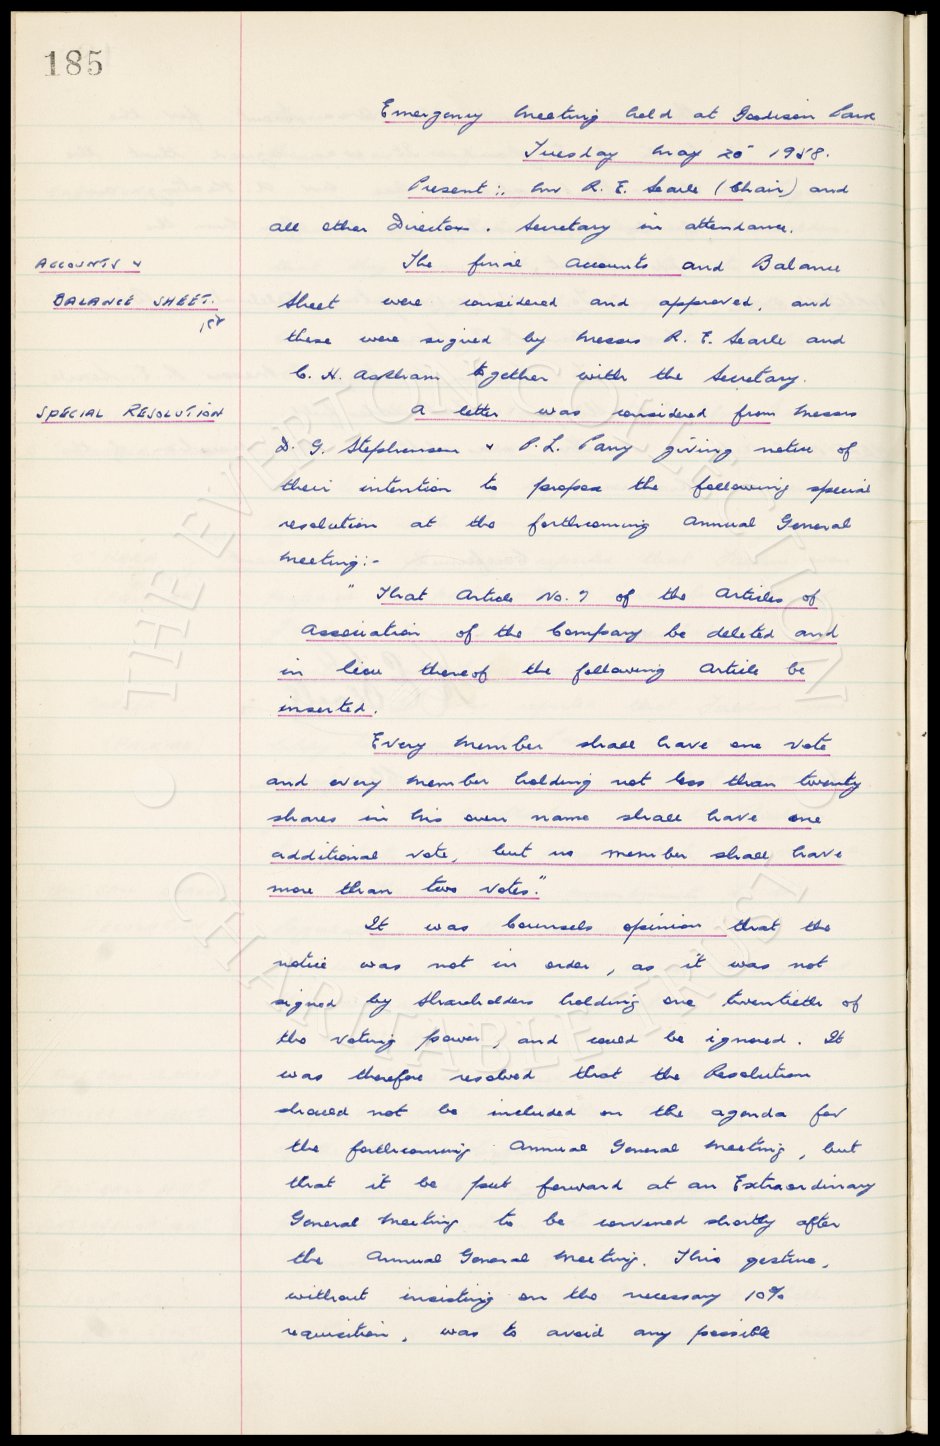 185
Emergency Meeting held at Goodison Park
Tuesday May 20 1958.
Present:. Mr R. E. Searle (Chair) and
all other Directors. Secretary in attendance.
ACCOUNTS &
BALANCE SHEET.
The final accounts and Balance
Sheet were considered and approved, and
these were signed by Messrs R. E. Searle and
C. H. Askham together with the Secretary.
SPECIAL RESOLUTION
A letter was considered from Messrs
D. G. Stephenson & P. L. Parry giving notice of
their intention to propose the following special
resolution at the forthcoming Annual General
Meeting:-
"That Article No. 7 of the Articles of
Association of the Company be deleted and
in lieu thereof the following Article be
inserted.
Every Member shall have one vote
and every Member holding not less than twenty
shares in his own name shall have one
additional vote, but no member shall have
more than two votes."
It was Counsels opinion that the
notice was not in order, as it was not
signed by Shareholders holding one twentieth of
the voting power, and could be ignored. It
was therefore resolved that the Resolution
should not be included on the agenda for
the forthcoming Annual General Meeting, but
that it be put forward at an Extraordinary
General Meeting to be convened shortly after
the Annual General Meeting. This gesture,
without insisting on the necessary 10%
requisition, was to avoid any possible
© THE EVERTON COLLECTION
CHARITABLE TRUST